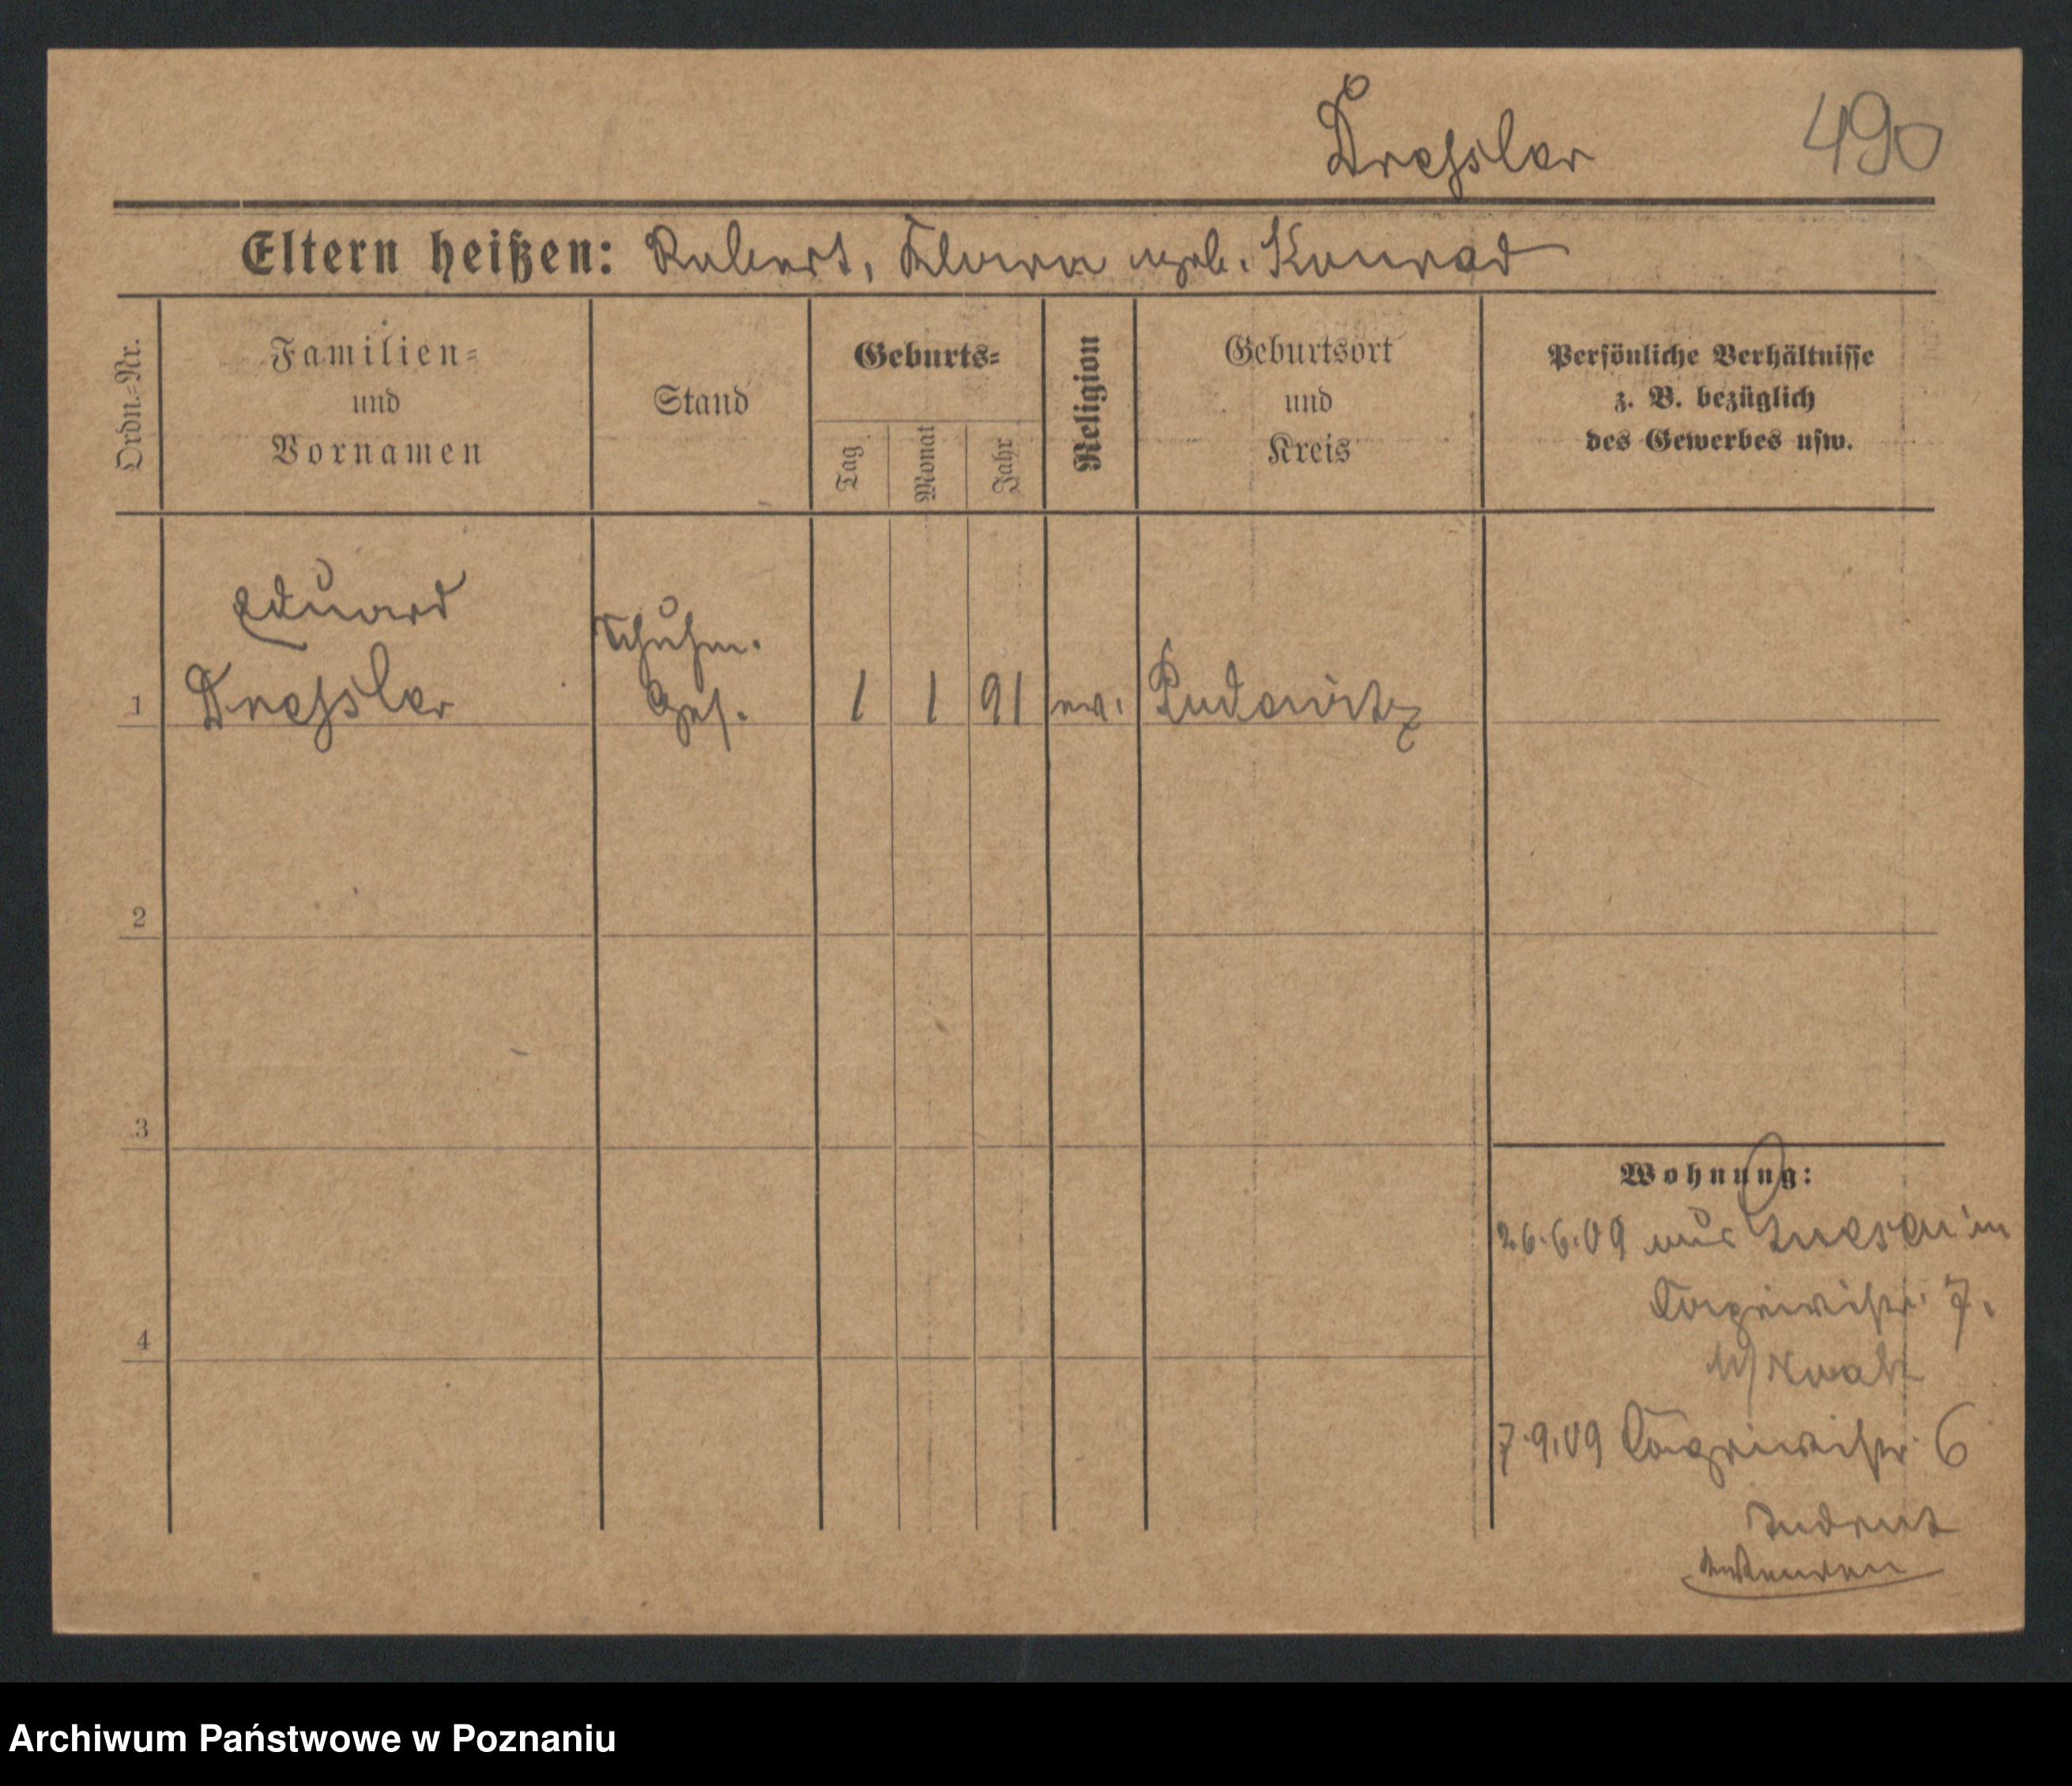 Dressler 490
Eltern heißen: Robert, Flora geb. Konrad
Ordn.-Nr.
Familien-
und
Vornamen
Stand
Geburts-
Tag
Monat
Jahr
Religion
Geburtsort
und
Kreis
Persönliche Verhältnisse
z. B. bezüglich
des Gewerbes usw.
Eduard
Schuhm.
1 Dressler Ges. 1 1 91 ev. Pudewitz
2
3
4
Wohnung:
26.6.09 aus
7.
7.9.09 6
Archiwum Państwowe w Poznaniu